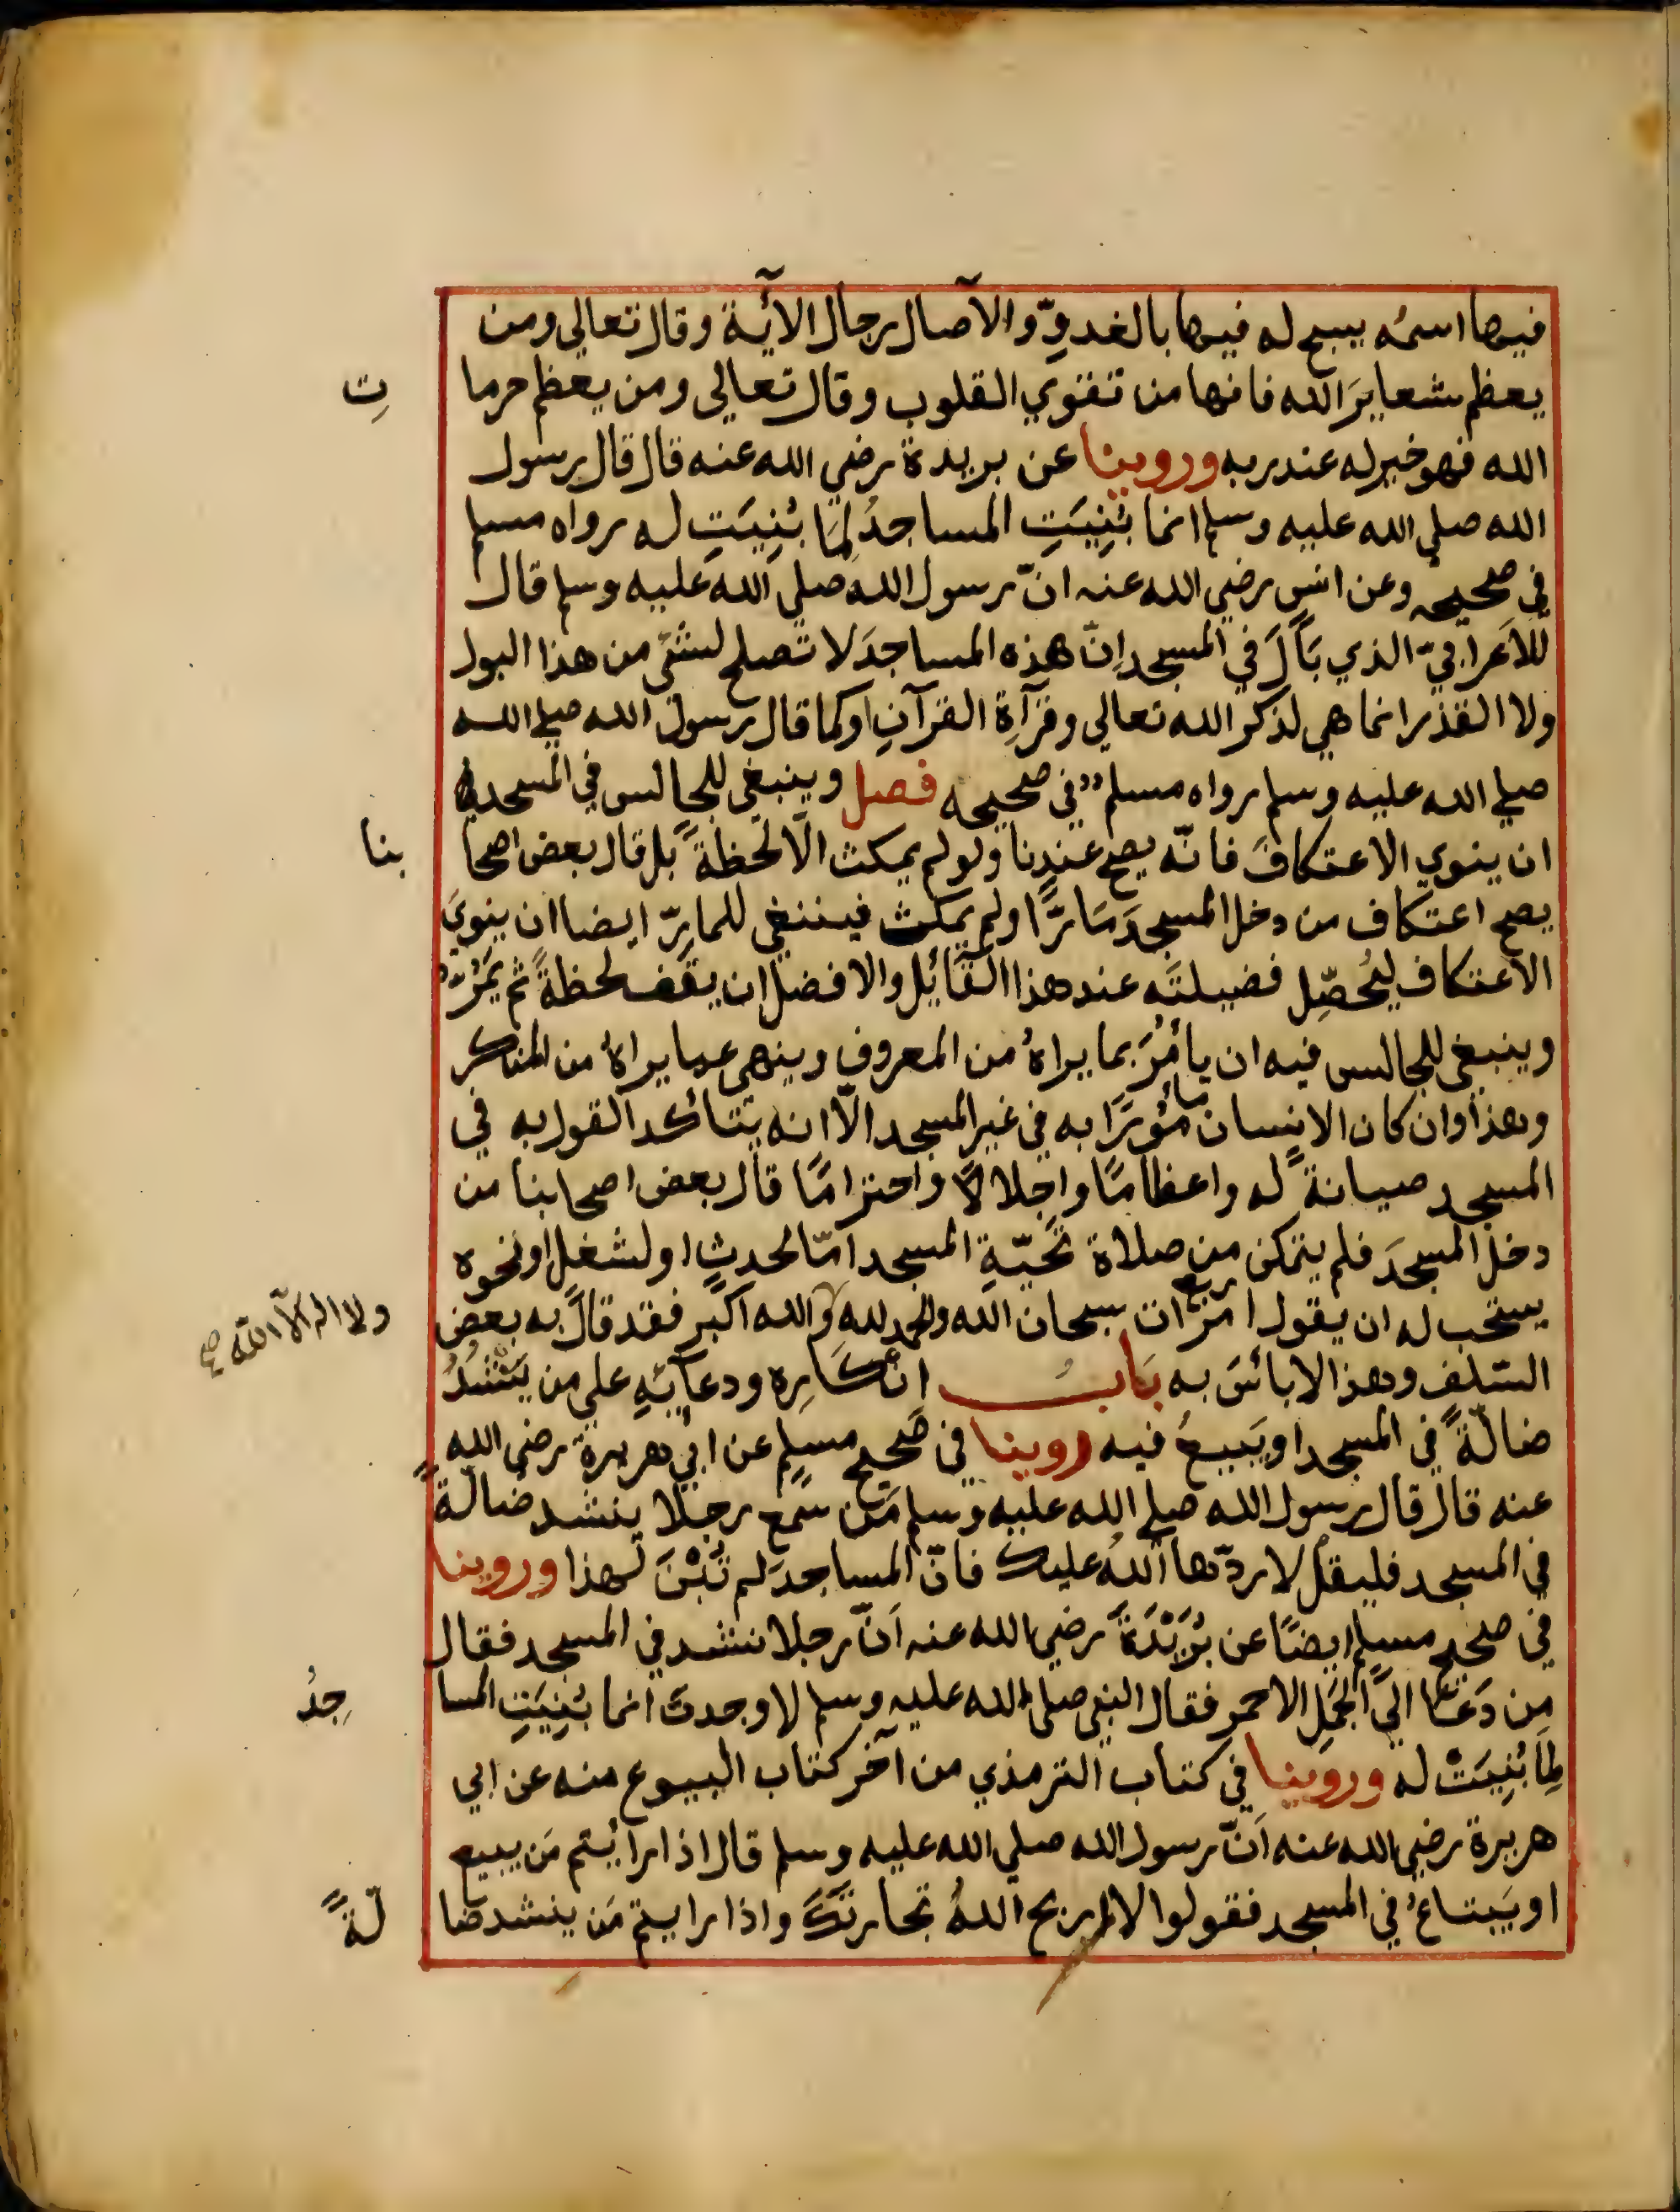 فيها اسمُه يسبح له فيها بالغدوِّ والآصال رجال الآية وقال تعالي ومن
يعظم شعايرَ الله فانها من تقوي القلوب وقال تعالي ومن يعظم حرما تِ
الله فهو خير له عند ربه وروينا عن بريدة رضي الله عنه قال قال رسول
الله صلي الله عليه وسلم انما بُنِيَتِ المساجدُ لِمَا بُنِيَتِ له رواه مسلم
في صحيحه وعن انس رضي الله عنه انّ رسول الله صلي الله عليه وسلم قال
للاَعرابيّ الذي بَالَ في المسجد اِنّ هذه المساجدَ لا تصلح لشئ من هذا البول
ولا القذر انما هي لذكر الله تعالي وقرآةِ القرآنِ اوكما قال رسول الله صلي الله
صلي الله عليه وسلم رواه مسلم في صحيحه فصل وينبغي للجالس في المسجد
ان ينوي الاعتكافَ فانّه يصح عندنا ولو لم يمكث الّا لحظةً بل قال بعض اصحا بنا
يصح اعتكاف من دخل المسجدَ مَارًّا ولم يمكث فينبغي للمارِّ ايضا ان ينويَ
الاعتكاف ليُحصِّل فضيلتَه عند هذا القآئِل والافضل ان يقف لحظةً ثم يَمُرّ
وينبغي للجالس فيه ان يأمُرَ بما يراهُ من المعروف وينهي عما يراهُ من المنكر
وهذا وان كان الانسان مأمُورًا به في غير المسجد الّا انه يتأكد القول به في
المسجد صيانةً له واعظامًا واجلالاً واحترامًا قال بعض اصحابنا من
دخل المسجدَ فلم يتمكن من صلاة تحيّةِ المسجد امّا لحدثٍ او لشغل او نحوه
يستحب له ان يقول اربع مرّات سبحان الله والحمد لله والله اكبر فقد قال به بعض
ولا اله الّا الله صح
السّلف وهذا لا بأسَ به بَابُ انكارِه ودعآئِهِ علي من يَنْشُدُ
ضالّةً في المسجد او يَبيعُ فيه روينا في صحيح مسلم عن ابي هريرة رضي الله
عنه قال قال رسول الله صلي الله عليه وسلم مَن سمع رجلا ينشد ضالّةً
في المسجد فليقل لا ردّها اللهُ عليك فانّ المساجدَ لم تُبْنَ لهذا وروينا
في صحيح مسلم ايضًا عن بُرَيْدَةَ رضي الله عنه اَنّ رجلا نشد في المسجد فقال
مِن دَعَا اليَّ الجَمَلِ الاحمر فقال النبي صلي الله عليه وسلم لا وجدتَ انما بُنِيَتِ المسا جِدُ
لِمَا بُنِيَتْ له وروينا في كتاب الترمذي من آخر كتاب البيوع منه عن ابي
هريرة رضي الله عنه اَنّ رسول الله صلي الله عليه وسلم قال اذا رأيتم مَن يبيع
او يَبتاعُ في المسجد فقولوا لا اربح اللهُ تجارتَكَ واذا رايتم مَن ينشد ضا لّةً